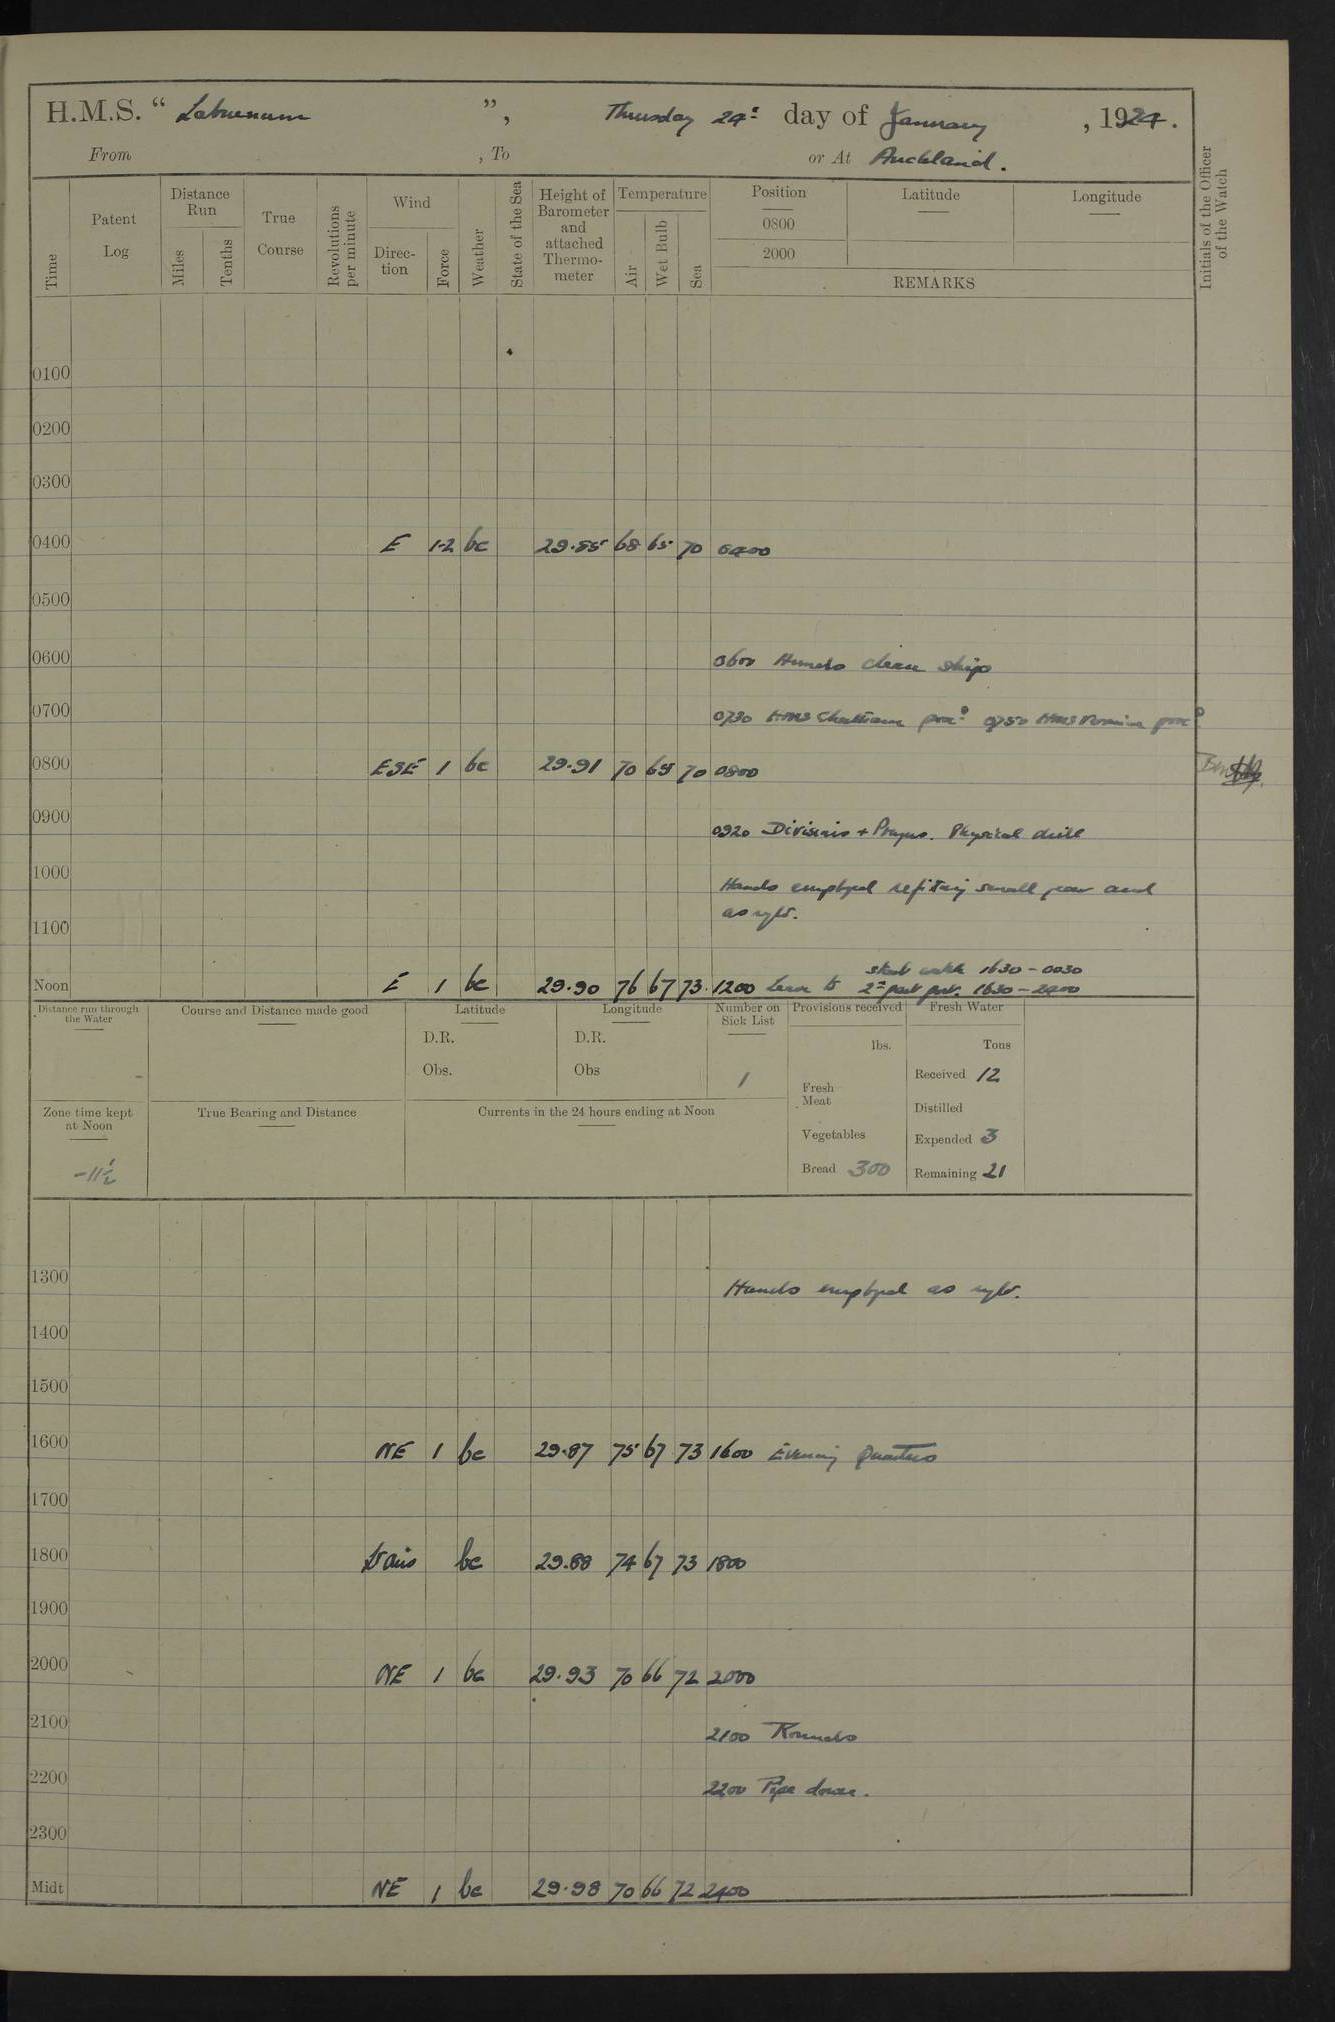 H.M.S. “ Laburnum ”, Thursday 24th day of January, 1924.
From , To or At Auckland.
Time
Patent Log
Distance Run
Miles
Tenths
True Course
Revolutions per minute
Wind
Direc-tion
Force
Weather
State of the Sea
Height of Barometer and attached Thermo-meter
Temperature
Air
Wet Bulb
Sea
Position
0800
2000
Latitude
Longitude
REMARKS
Initials of the Officer of the Watch
0100
0200
0300
0400 E 1-2 bc 29.85 68 65 70 0400
0500
0600 0600 Hands clean ship
0700 0730 HMS Chatham proc⁰ 0750 HMS Veronica proc⁰
0800 ESE 1 bc 29.91 70 65 70 0800
0900 0920 Divisions + Prayers. Physical drill
1000 Hands employed refitting small gear and
as reqte.
1100
Stard watch 1630 - 0030
Noon E 1 bc 29.90 76 67 73 1200 Leave to 2nd part port. 1630 - 2400
Distance run through the Water
Course and Distance made good
Latitude
D.R.
Obs.
Longitude
D.R.
Obs
Number on Sick List
1
Provisions received
lbs.
Fresh Meat
Vegetables
Bread 300
Fresh Water
Tons
Received 12
Distilled
Expended 3
Remaining 21
Zone time kept at Noon
-11½
True Bearing and Distance
Currents in the 24 hours ending at Noon
1300 Hands employed as reqte.
1400
1500
1600 NE 1 bc 29.87 75 67 73 1600 Evening Quarters
1700
1800 Lt airs bc 29.88 74 67 73 1800
1900
2000 NE 1 bc 29.93 70 66 72 2000
2100 2100 Rounds
2200 2200 Pipe down.
2300
Midt NE 1 bc 29.98 70 66 72 2400